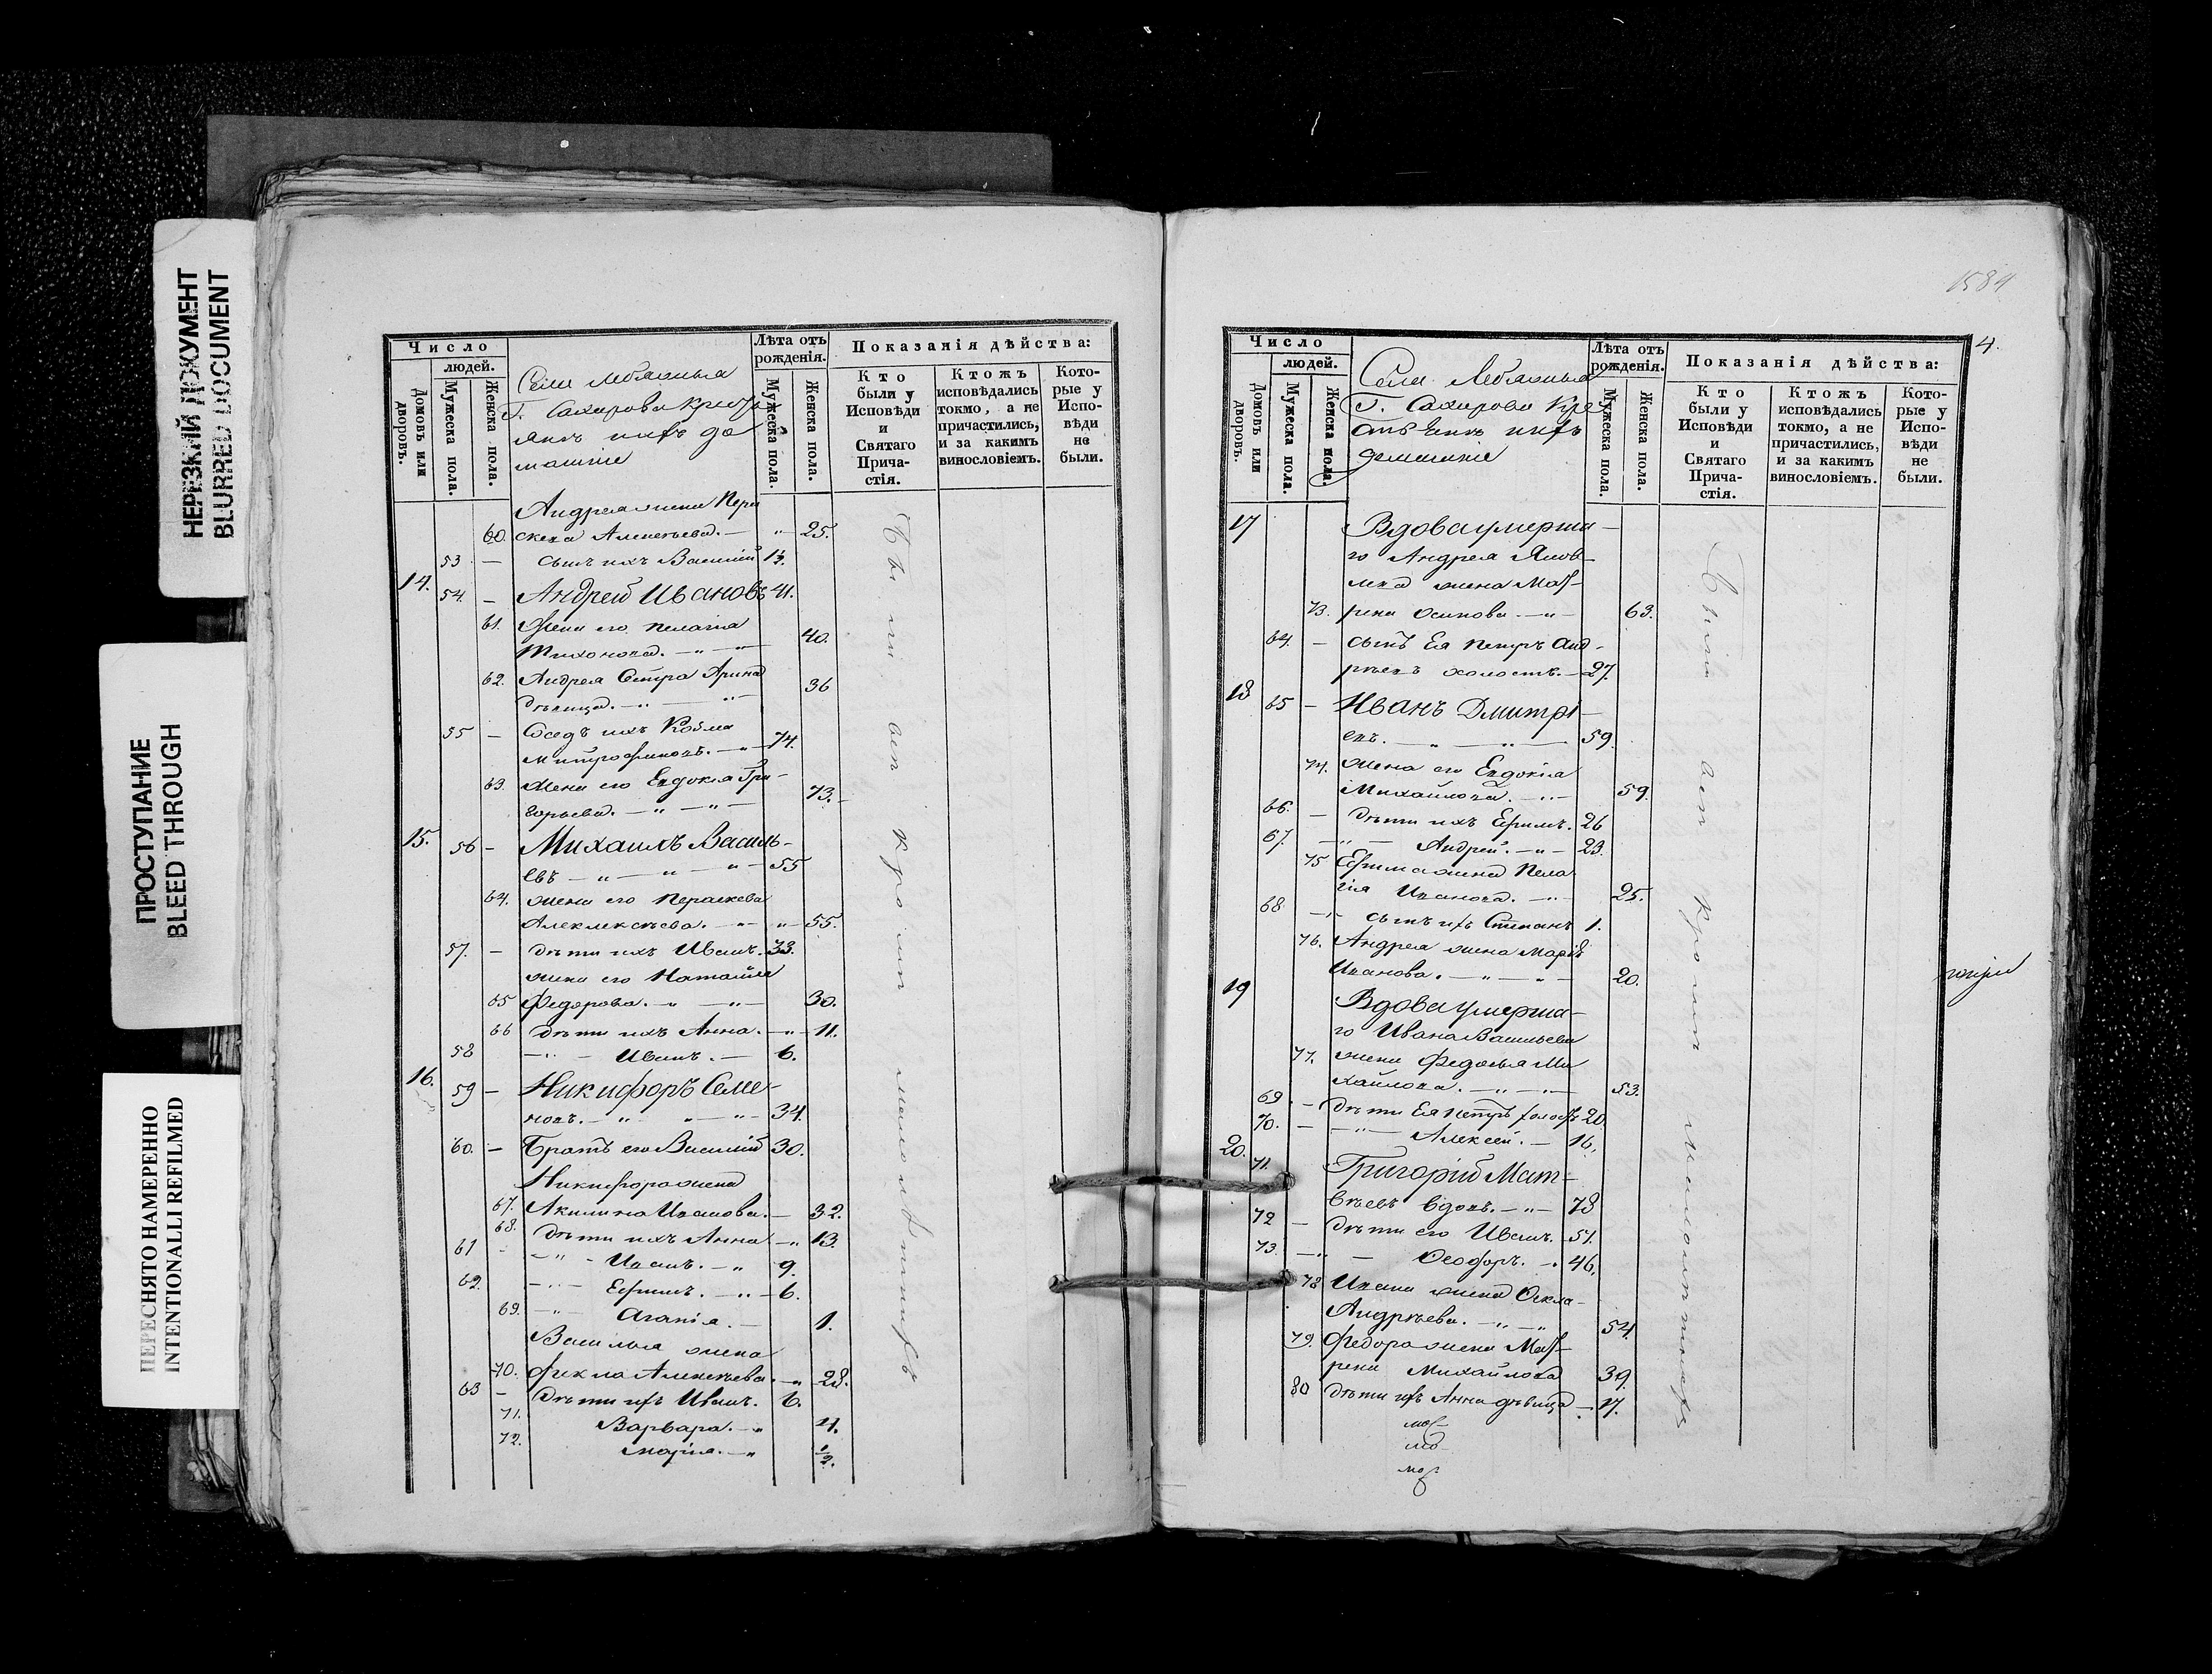 НЕРЕЗКИЙ ДОКУМЕНТ
BLURRED DOCUMENT
ПРОСТУПАНИЕ
BLEED THROUGH
ПЕРЕСНЯТО НАМЕРЕННО
INTENTIONALLI REFILMED
Число
людей.
Домовъ или дворовъ.
Мужеска пола.
Женска пола.
Г. Сахарова Крестья
янъ ихъ до
машніе
Лѣта отъ рожденія.
Мужеска пола.
Женска пола.
Показанія дѣйства:
Кто были у Исповѣди и Святаго Причастія.
Ктожъ исповѣдались токмо, а не причастились, и за какимъ винословіемъ.
Которые у Исповѣди не были.
Андрея жена Пера
60. скева Алексѣева. — " — 25.
53 — сынъ ихъ Василій 1½.
14. 54. — Андрей Ивановъ 41.
61. Жена его Пелагія
Тихонова. — " — " — 40.
62. Андрея Сестра Арина
дѣвица. — " — " — 36
55 — Сосѣдъ ихъ Козма
Митрофановъ. — " — 74.
63. Жена его Евдокія Гри-
горьева. — " — " — 73.
15. 56 — Михаилъ Василь-
евъ — " — " — " — 55
64. жена его Пераскева
Алеклексѣева. — " — " — 55.
57. — дѣти ихъ Иванъ. 33.
жена его Наталья
65 Федорова. — " — " — 30.
66 дѣти ихъ Анна. — " — 11.
58 — " — Иванъ. — 6.
16. 59 — Никифоръ Семе-
новъ. — " — " — " — 34.
60. — Братъ его Василій 30.
Никифора жена
67. Акилина Иванова. — 32.
68. дѣти ихъ Анна — " 13.
61 — " — Иванъ. — " 9.
62. — " — Ефимъ. — " — 6.
69. — " — Агапія. — 1.
Василья жена
70. Фекла Алексѣева. — " — 28.
63 — дѣти ихъ Иванъ. 6.
71. Варвара. — " 4.
72. Марія. — " ½.
1584
4.
Число
людей.
Домовъ или дворовъ.
Мужеска пола.
Женска пола.
Г. Сахарова Кре
стьянъ ихъ
домашніе
Лѣта отъ рожденія.
Мужеска пола.
Женска пола.
Показанія дѣйства:
Кто были у Исповѣди и Святаго Причастія.
Ктожъ исповѣдались токмо, а не причастились, и за какимъ винословіемъ.
Которые у Исповѣди не были.
17 Вдова умерша-
го Андрея Яков-
лева жена Мат-
73. рена Осипова — " — 63.
64. — сынъ Ея Петръ Анд-
рѣевъ холостъ. — 27.
18 65 — Иванъ Дмитрі-
евъ. — " — " — 59.
74. жена его Евдокія
Михайлова. — " — 59.
66. — дѣти ихъ Ефимъ. 26
67. — " — Андрей. — " — 23.
75 Ефима жена Пела
гія Иванова. — " — 25.
68. — " — сынъ ихъ Степанъ 1.
76. Андрея жена Марія
Иванова. — " — " — 20.
19 Вдова умерша-
го Ивана Васильева
77. жена Федосья Ми
хайлова. — " — " — 53.
69. — дѣти Ея Петръ холостъ 20
70. — " — Алексей. — 16.
20. 71. Григорій Мат-
вѣевъ вдовъ. — " — 78
72 — дѣти его Иванъ. — 51.
73. — " — Ѳеодоръ. — . 46.
78 Ивана жена Ѳекла
Андрѣева. — " — " 54.
79. Федора жена Мат-
рена Михайлова 39.
80 дѣти ихъ Анна дѣвица — 17.